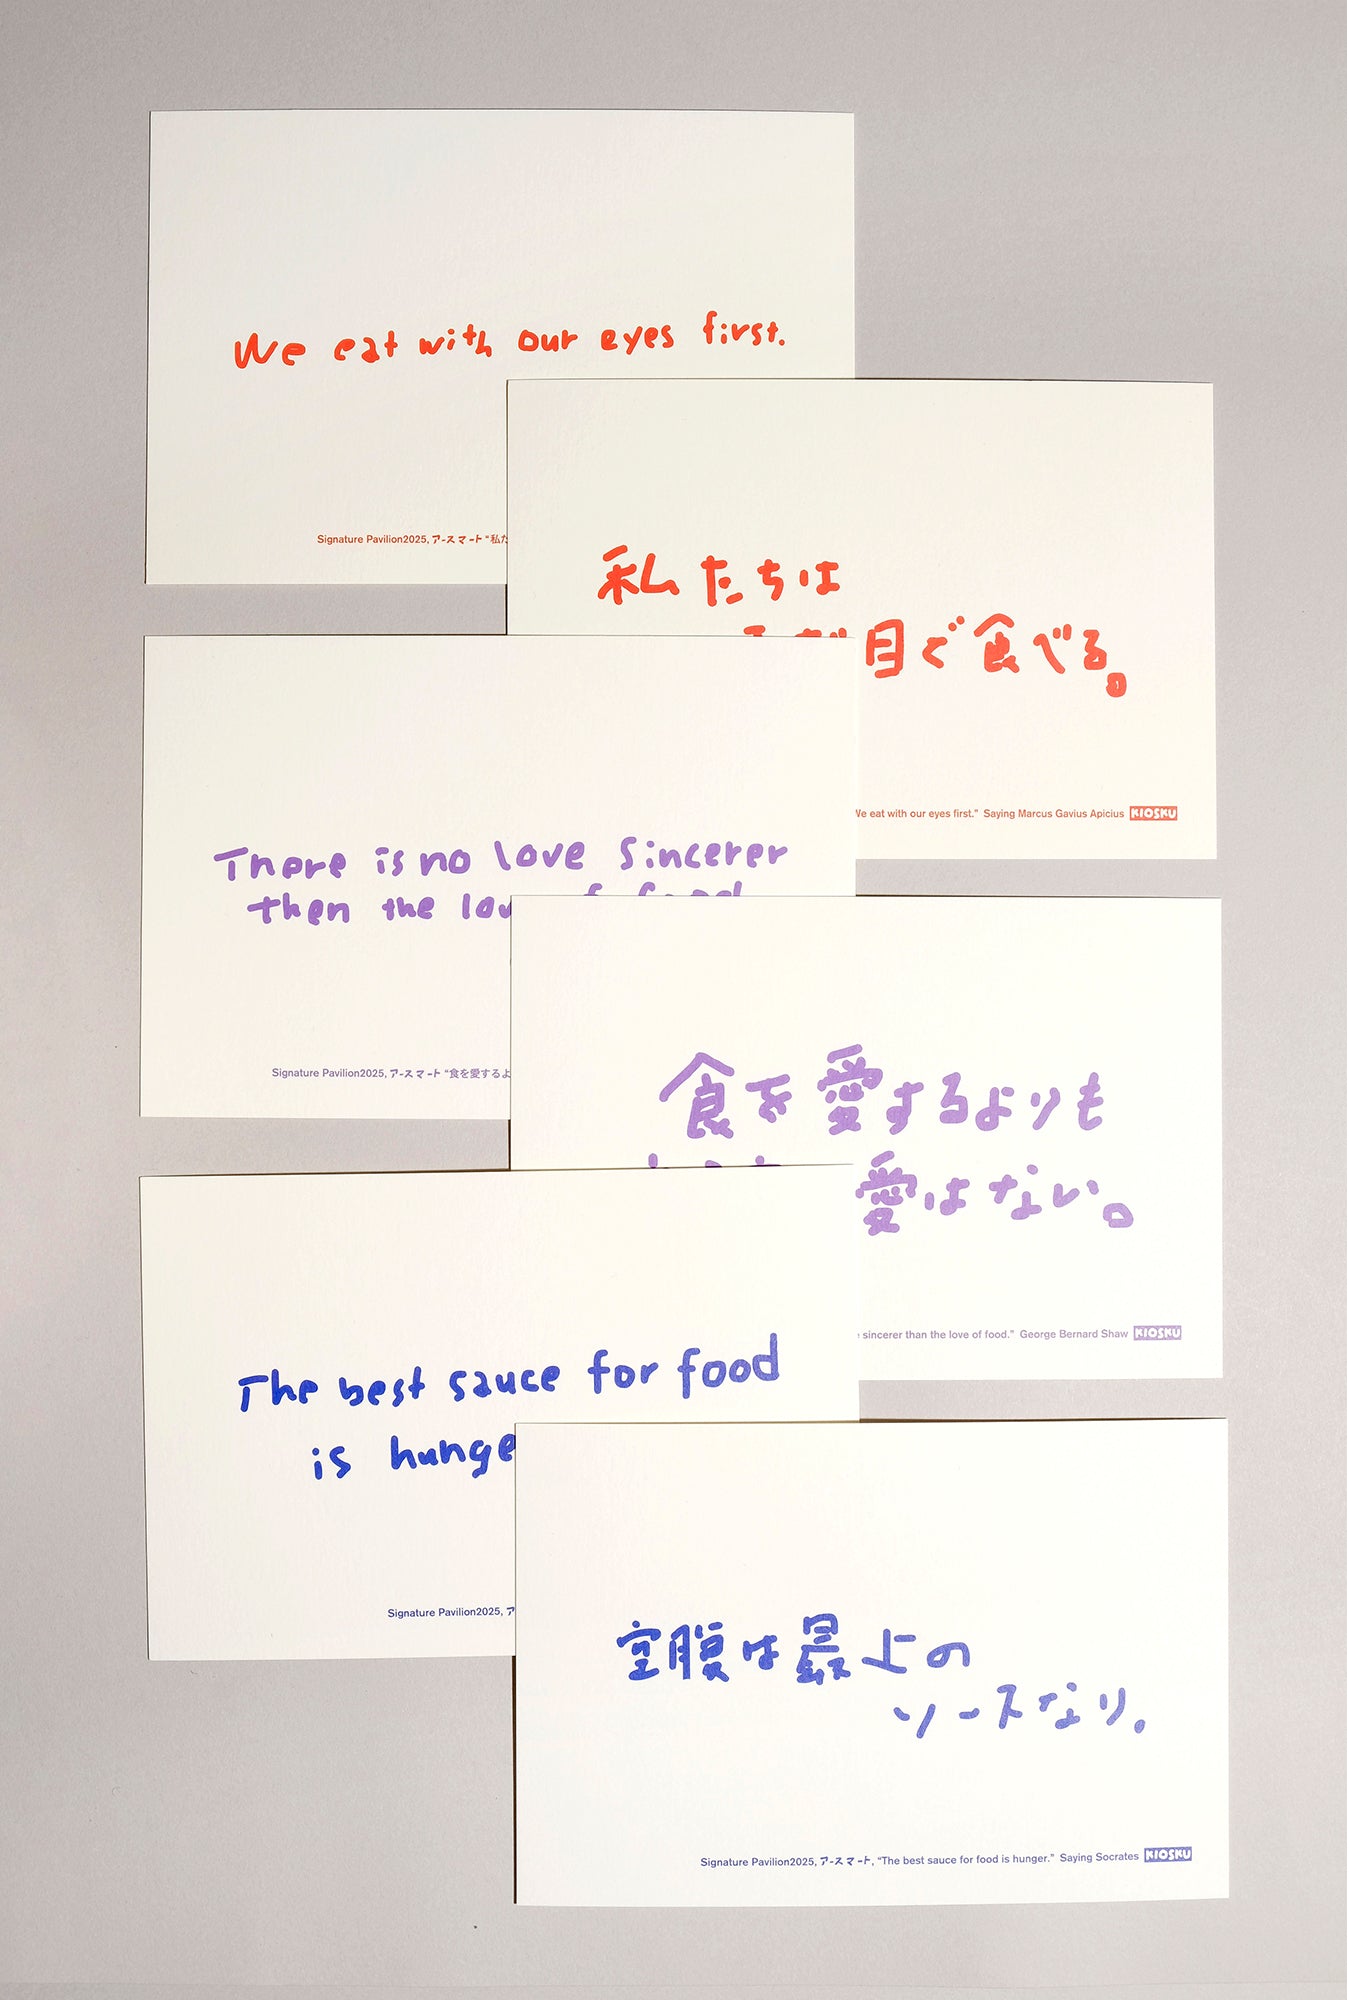 We eat with our eyes first.
Signature Pavilion2025, アースマート “私た
私たちは
目で食べる。
We eat with our eyes first.” Saying Marcus Gavius Apicius KIOSKU
There is no love sincerer
then the love of food
Signature Pavilion2025, アースマート “食を愛するよ
食を愛するよりも
愛はない。
sincerer than the love of food.” George Bernard Shaw KIOSKU
The best sauce for food
is hunge
Signature Pavilion2025, ア
空腹は最上の
ソースなり.
Signature Pavilion2025, アースマート, “The best sauce for food is hunger.” Saying Socrates KIOSKU